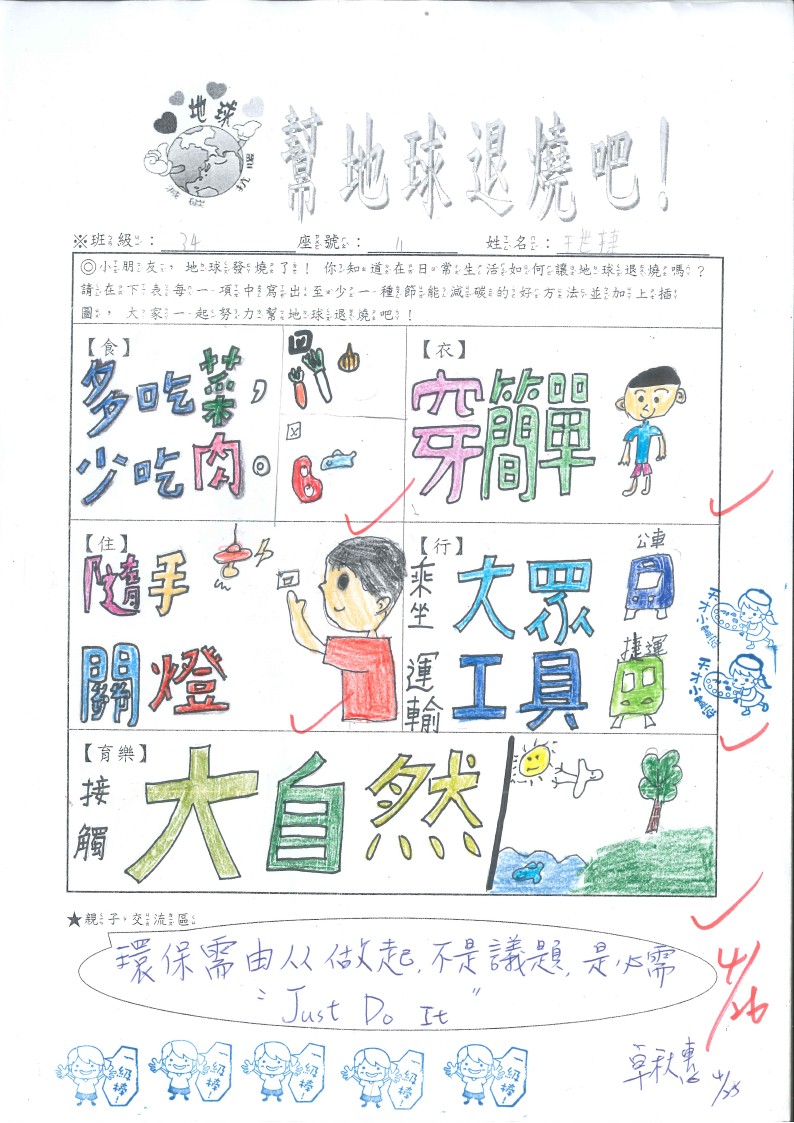 地球
減碳
抗暖
幫地球退燒吧!
※班級: 34 座號: 11 姓名:
◎小朋友,地球發燒了!你知道在日常生活如何讓地球退燒嗎?
請在下表每一項中寫出至少一種節能減碳的好方法並加上插
圖,大家一起努力幫地球退燒吧!
【食】
多吃菜,
少吃肉。
【衣】
穿簡單
【住】
隨手
關燈
【行】
乘坐
大眾
運輸
工具
公車
捷運
【育樂】
接觸
大自然
★親子交流區
環保需由从做起,不是議題,是必需
"Just Do It"
4/26
一級棒!
一級棒!
一級棒!
一級棒!
一級棒!
4/25